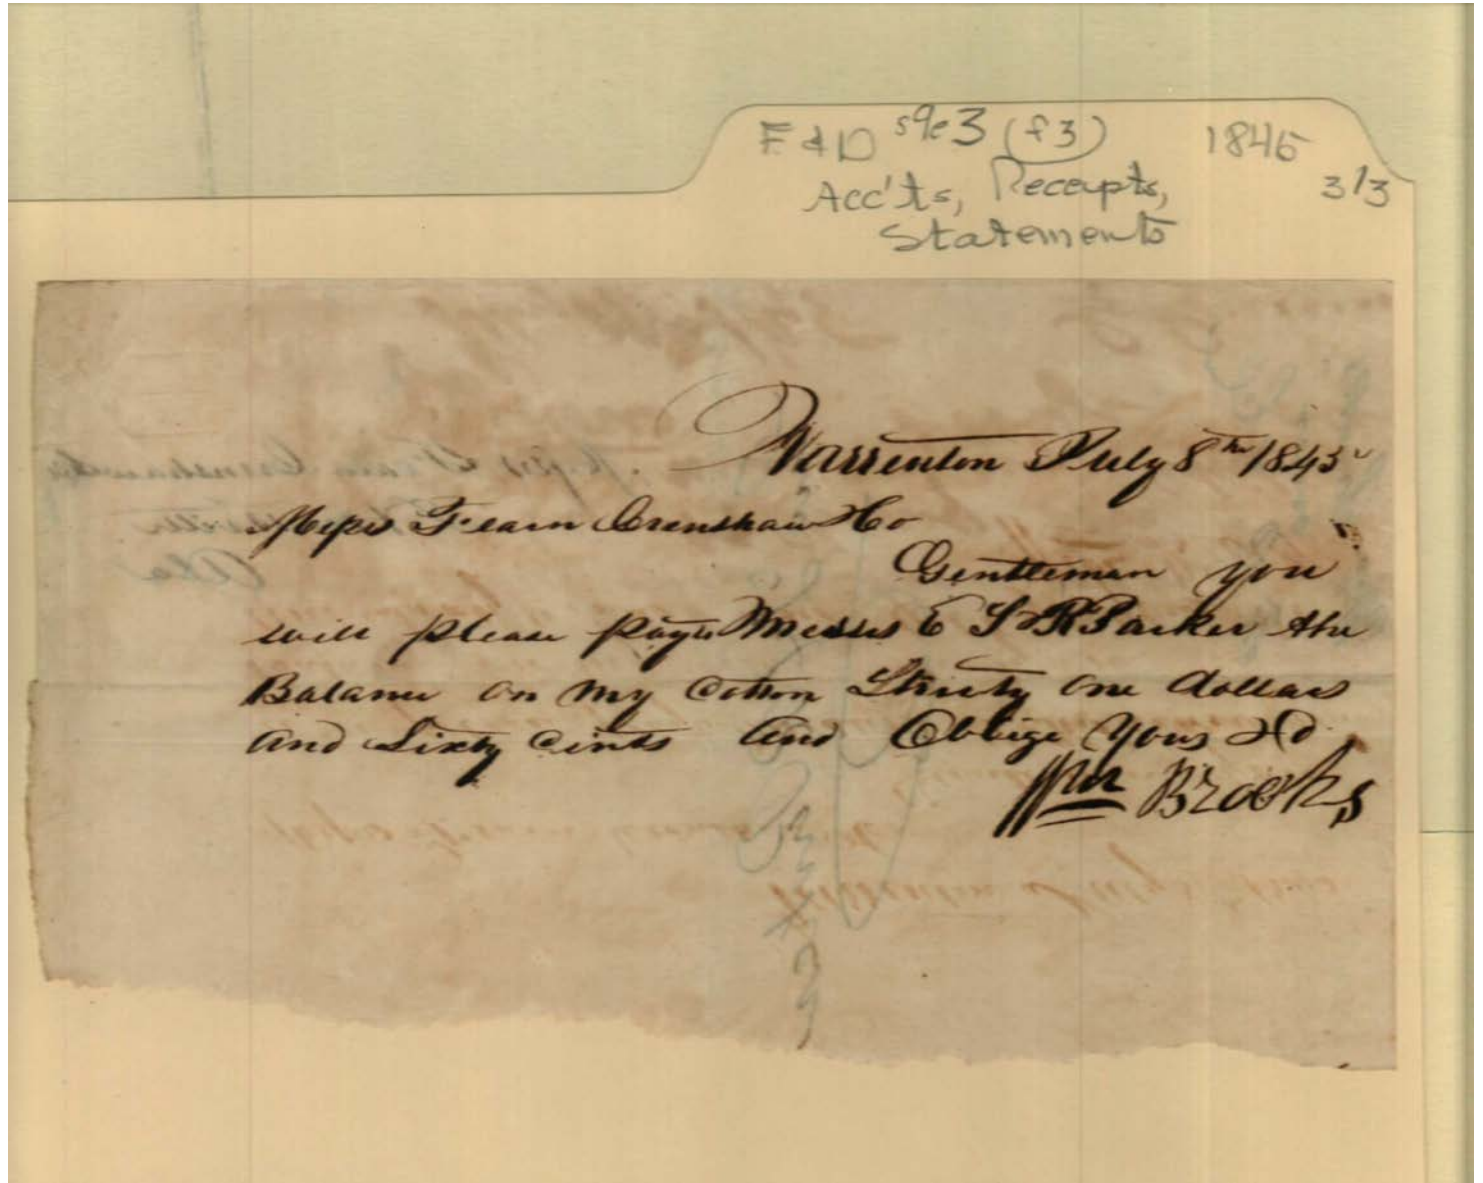 F & D s9e3 (f3) 1845
3/3
Acc'ts, Receipts,
Statements
Warrenton July 8th 1845
Messrs Fearn Crenshaw & Co
Gentleman you
will please pay to Messrs E S & R Parker the
Balance on my Cotton Thirty one dollars
and Sixty Cents and Oblige Yours &c
Wm Brooks